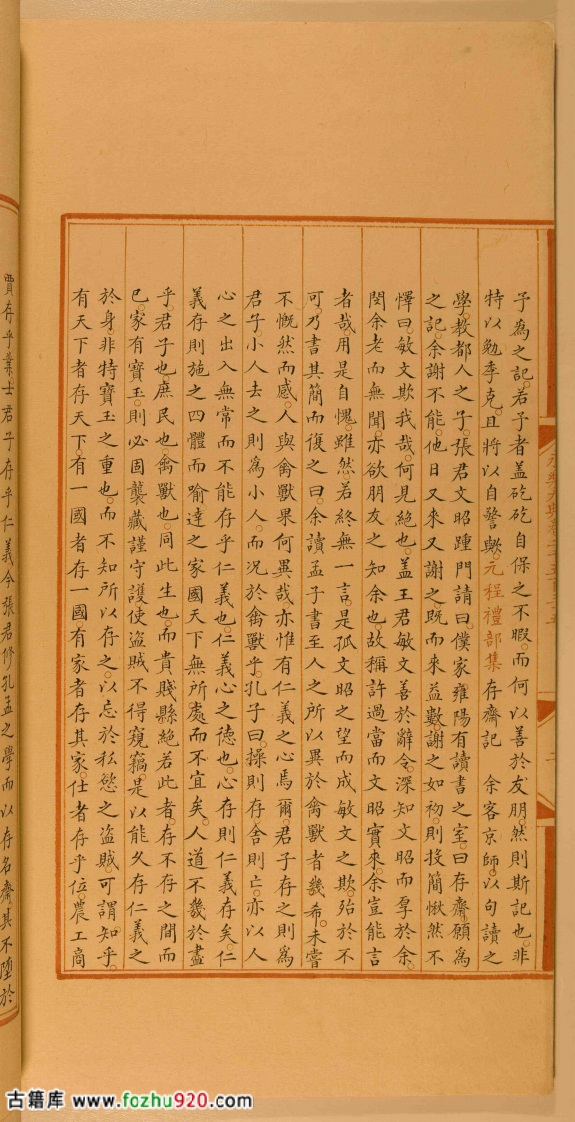 予為之記若予者盖矻矻自保之不暇而何以善於友朋然則斯記也非
特以勉李克且將以自警歟元程禮部集存齋記 余客京師以句讀之
學教都人之子張君文昭踵門請曰僕家雍陽有讀書之室曰存齋願為
之記余謝不能他日又來又謝之既而來益數謝之如初則投簡愀然不
懌曰敏文欺我哉何見絶也盖王君敏文善於辭令深知文昭而厚於余
閔余老而無聞亦欲朋友之知余也故稱許過當而文昭實來余豈能言
者哉用是自愧雖然若終無一言是孤文昭之望而成敏文之欺殆於不
可乃書其簡而復之曰余讀孟子書至人之所以異於禽獸者幾希未嘗
不慨然而感人與禽獸果何異哉亦惟有仁義之心焉爾君子存之則為
君子小人去之則為小人而況於禽獸乎孔子曰操則存舍則亡亦以人
心之出入無常而不能存乎仁義也仁義心之德也心存則仁義存矣仁
義存則施之四體而喻達之家國天下無所處而不宜矣人道不幾於盡
乎君子也庶民也禽獸也同此生也而貴賤縣絶若此者存不存之間而
已家有寶玉則必固襲藏謹守護使盗賊不得窺竊是以能久存仁義之
於身非特寶玉之重也而不知所以存之以忘於私慾之盗賊可謂知乎
有天下者存天下有一國者存一國有家者存其家仕者存乎位農工商
賈存乎業士君子存乎仁義今張君修孔孟之學而以存名齋其不墮於
古籍库 www.fozhu920.com